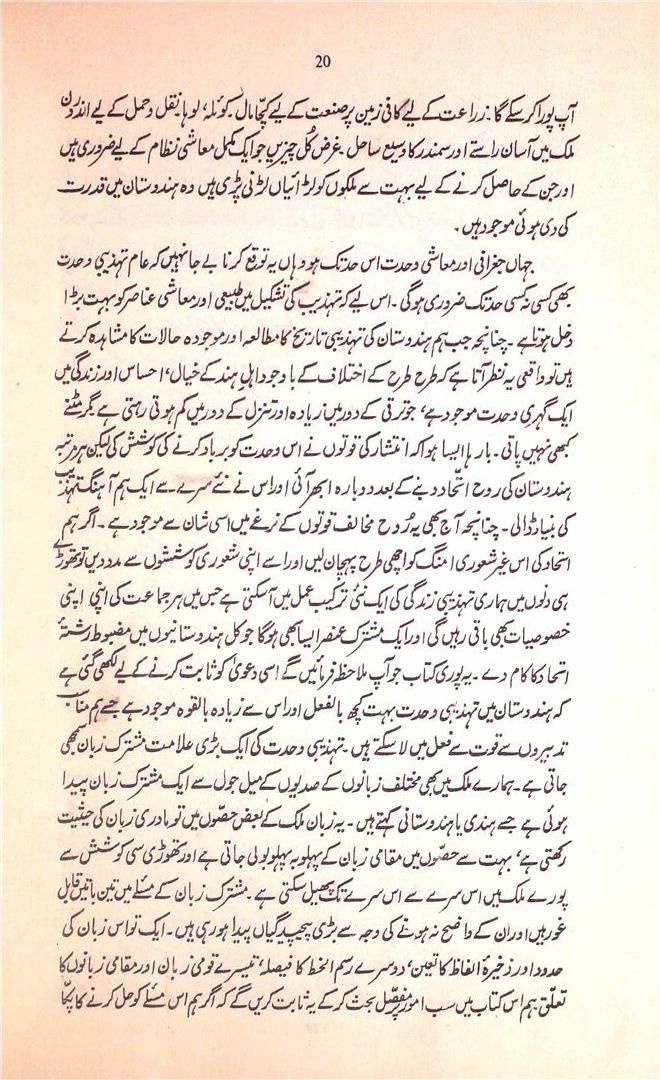 20
آپ پورا کر سکے گا۔ زراعت کے لیے کافی زمین پر صنعت کے لیے کچّا مال، کوئلہ، لوہا نقل و حمل کے لیے اندرون
ملک میں آسان راستے اور سمندر کا وسیع ساحل۔ غرض کُل چیزیں جو ایک مکمل معاشی نظام کے لیے ضروری ہیں
اور جن کے حاصل کرنے کے لیے بہت سے ملکوں کو لڑائیاں لڑنی پڑی ہیں وہ ہندوستان میں قدرت
کی دی ہوئی موجود ہیں۔
جہاں جغرافی اور معاشی وحدت اس حد تک ہو وہاں یہ توقع کرنا بے جا نہیں کہ عام تہذیبی وحدت
بھی کسی نہ کسی حد تک ضروری ہو گی۔ اس لیے کہ تہذیب کی تشکیل میں طبیعی اور معاشی عناصر کو بہت بڑا
دخل ہوتا ہے۔ چنانچہ جب ہم ہندوستان کی تہذیبی تاریخ کا مطالعہ اور موجودہ حالات کا مشاہدہ کرتے
ہیں تو واقعی یہ نظر آتا ہے کہ طرح طرح کے اختلاف کے باوجود اہلِ ہند کے خیال، احساس اور زندگی میں
ایک گہری وحدت موجود ہے، جو ترقی کے دور میں زیادہ اور تنزل کے دور میں کم ہوتی رہتی ہے مگر مٹنے
کبھی نہیں پاتی۔ بارہا ایسا ہوا کہ انتشار کی قوتوں نے اس وحدت کو برباد کرنے کی کوشش کی لیکن ہر مرتبہ
ہندوستان کی روح اتّحاد دبنے کے بعد دوبارہ ابھر آئی اور اس نے نئے سرے سے ایک ہم آہنگ تہذیب
کی بنیاد ڈالی۔ چنانچہ آج بھی یہ رُوح مخالف قوتوں کے نرغے میں اسی شان سے موجود ہے۔ اگر ہم
اتحاد کی اس غیر شعوری امنگ کو اچھی طرح پہچان لیں اور اسے اپنی شعوری کوششوں سے مدد دیں تو تھوڑے
ہی دنوں میں ہماری تہذیبی زندگی کی ایک نئی ترکیب عمل میں آ سکتی ہے جس میں ہر جماعت کی اپنی اپنی
خصوصیات بھی باقی رہیں گی اور ایک مشترک عنصر ایسا بھی ہوگا جو کل ہندوستانیوں میں مضبوط رشتۂ
اتحاد کا کام دے۔ یہ پوری کتاب جو آپ ملاحظہ فرمائیں گے اسی دعویٰ کو ثابت کرنے کے لیے لکھی گئی ہے
کہ ہندوستان میں تہذیبی وحدت بہت کچھ بالفعل اور اس سے زیادہ بالقوہ موجود ہے جسے ہم مناسب
تدبیروں سے قوت سے فعل میں لا سکتے ہیں۔ تہذیبی وحدت کی ایک بڑی علامت مشترک زبان سمجھی
جاتی ہے۔ ہمارے ملک میں بھی مختلف زبانوں کے صدیوں کے میل جول سے ایک مشترک زبان پیدا
ہوئی ہے جسے ہندی یا ہندوستانی کہتے ہیں۔ یہ زبان ملک کے بعض حصّوں میں تو مادری زبان کی حیثیت
رکھتی ہے، بہت سے حصّوں میں مقامی زبان کے پہلو بہ پہلو بولی جاتی ہے اور تھوڑی سی کوشش سے
پورے ملک میں اس سرے سے اس سرے تک پھیل سکتی ہے۔ مشترک زبان کے مسئلے میں تین باتیں قابل
غور ہیں اور ان کے واضح نہ ہونے کی وجہ سے بڑی پیچیدگیاں پیدا ہو رہی ہیں۔ ایک تو اس زبان کی
حدود اور ذخیرۂ الفاظ کا تعین، دوسرے رسم الخط کا فیصلہ، تیسرے قومی زبان اور مقامی زبانوں کا
تعلّق ہم اس کتاب میں سب امور پر مفصّل بحث کر کے یہ ثابت کریں گے کہ اگر ہم اس مسئلے کو حل کرنے کا پکّا